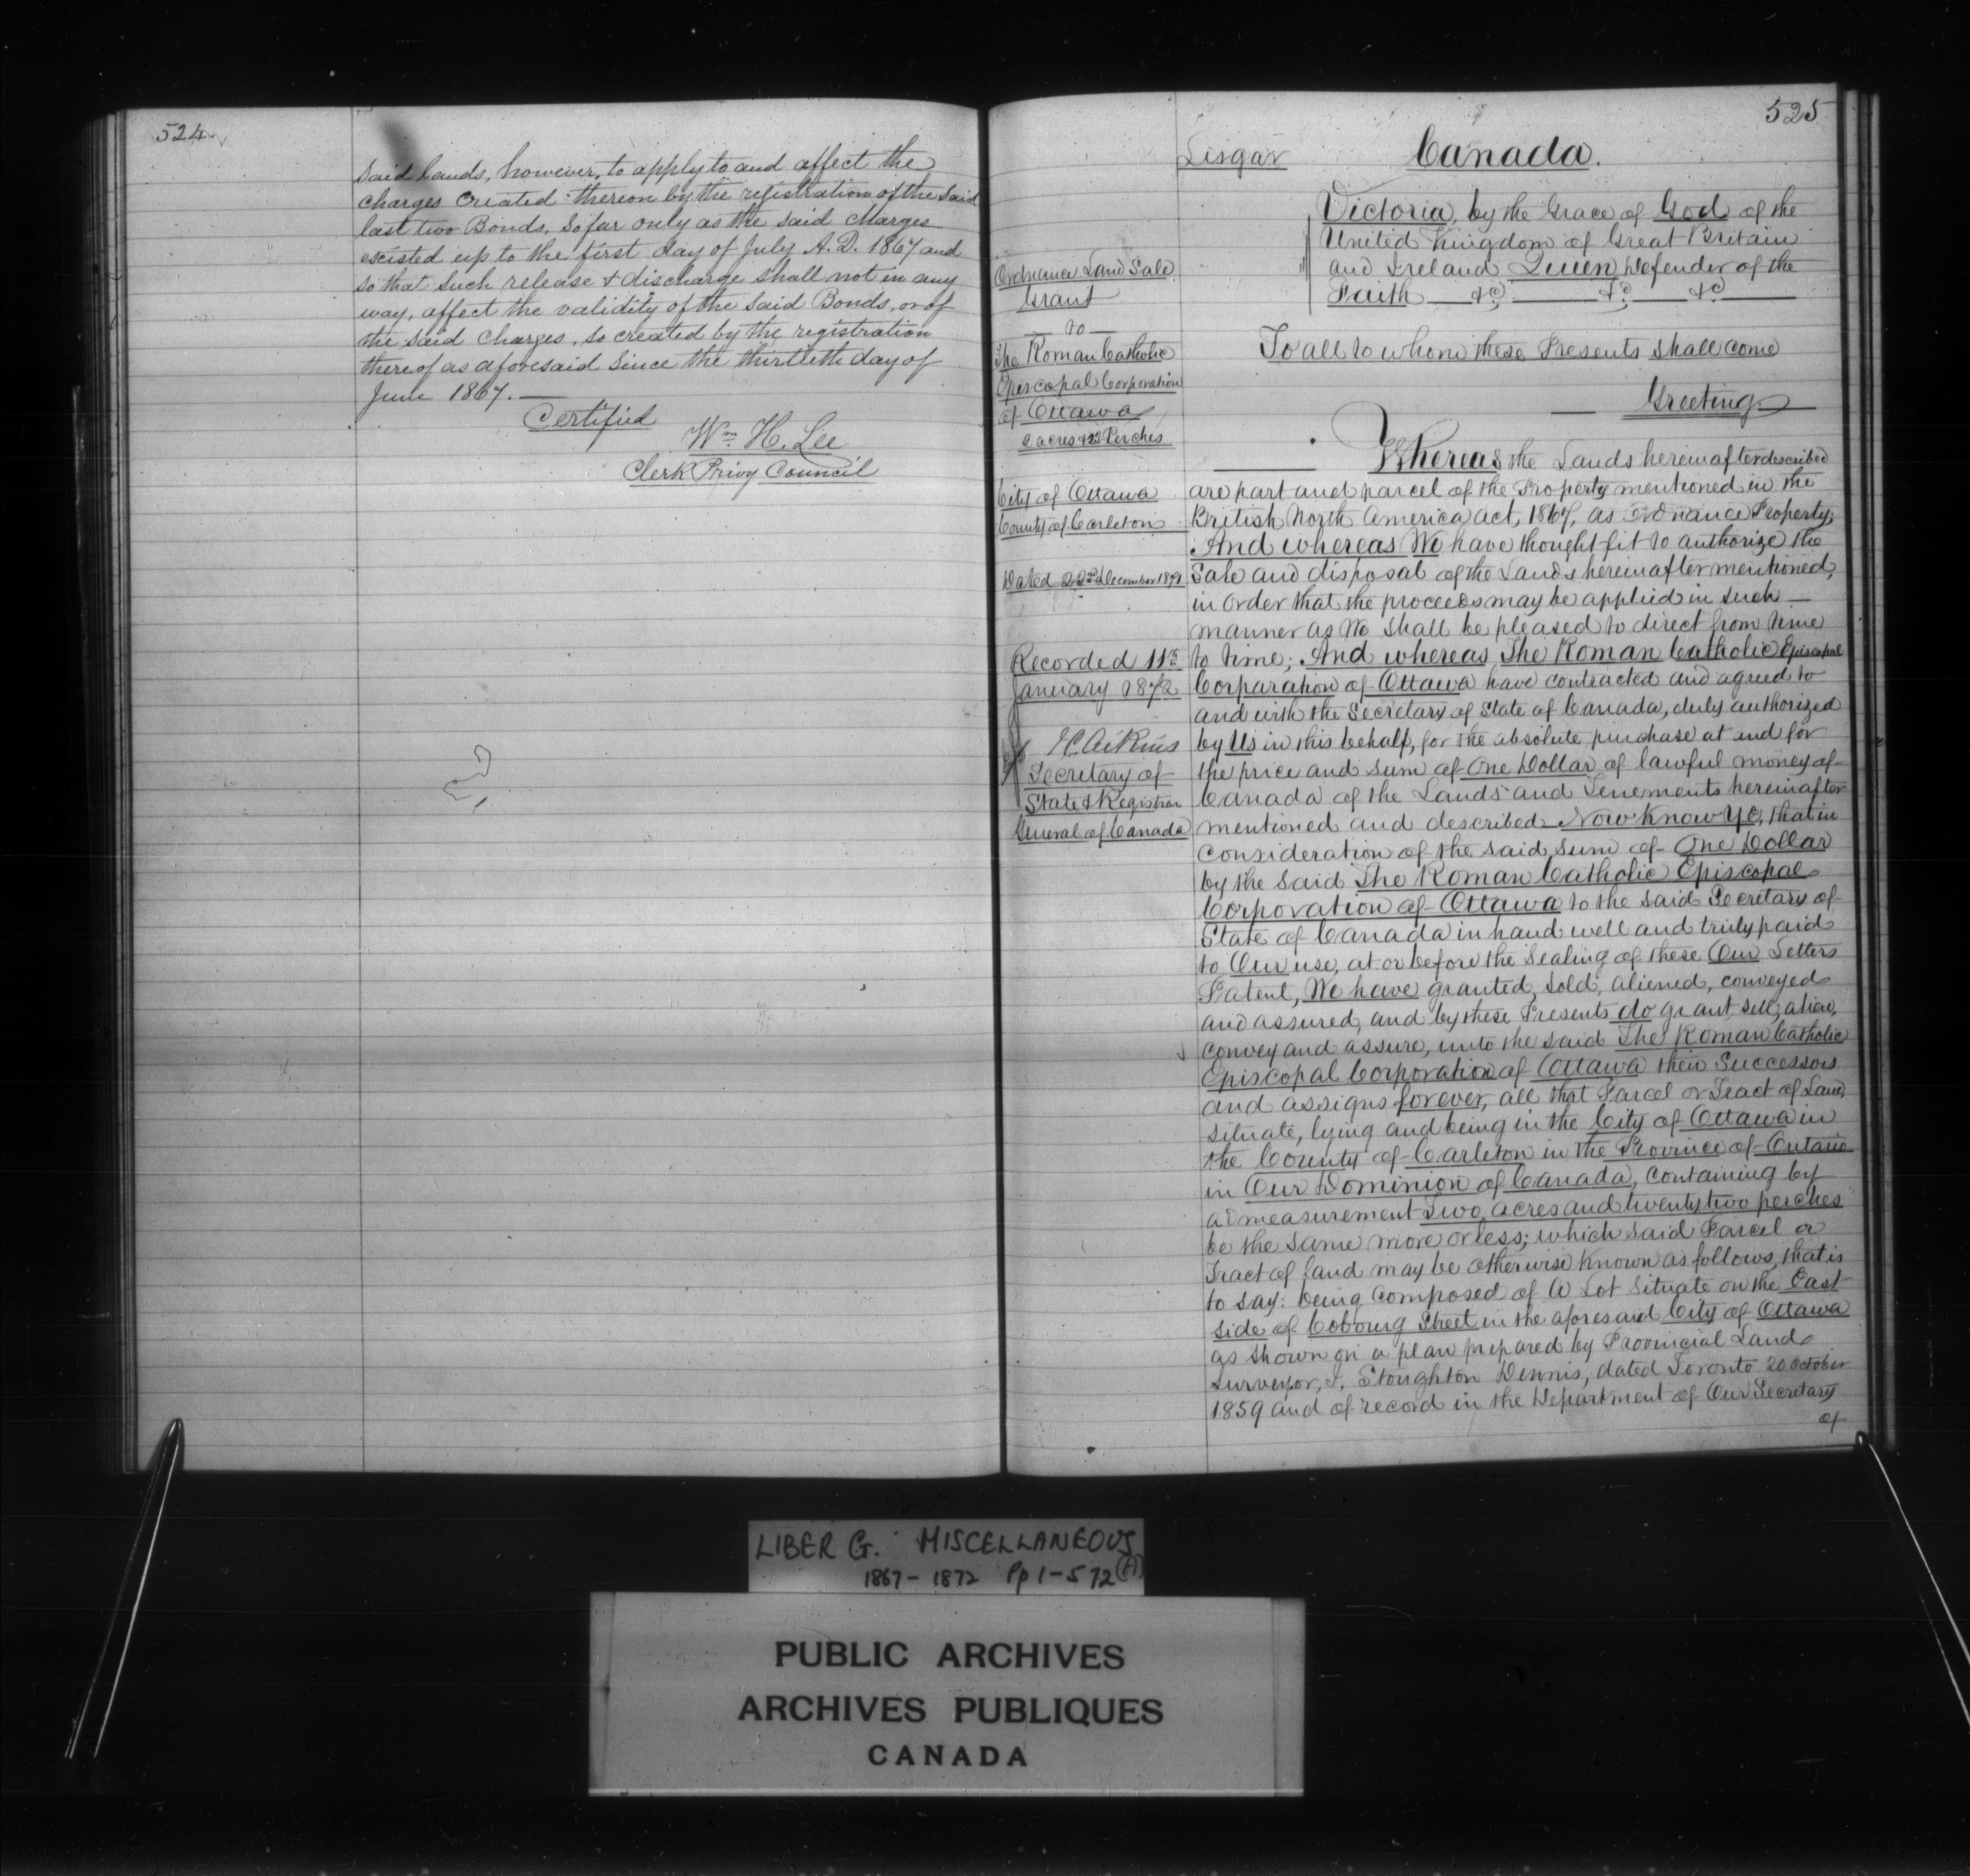 524
said Lands, however, to apply to and affect the
charges created thereon by the registration of the said
last two Bonds, so far only as the said charges
existed up to the first day of July A.D. 1867 and
so that such release & discharge shall not in any
way, affect the validity of the said Bonds, or of
the said charges, so created by the registration
thereof as aforesaid since the thirtieth day of
June 1867.
Certified
Wm. H. Lee
Clerk Privy Council
525
Lisgar
Canada.
Victoria, by the Grace of God of the
United Kingdom of Great Britain
and Ireland Queen Defender of the
Faith &c &c &c
To all to whom these Presents shall come
Greeting
Ordnance Land Sale
Grant
to
The Roman Catholic
Episcopal Corporation
of Ottawa
2 acres & 22 Perches
City of Ottawa
County of Carleton
Dated 22nd December 1871
Recorded 11th
January 1872
J C Aikins
Secretary of
State & Registrar
General of Canada
Whereas the Lands hereinafter described
are part and parcel of the Property mentioned in the
British North America Act, 1867, as Ordnance Property;
And whereas We have thought fit to authorize the
Sale and disposal of the Lands hereinafter mentioned,
in order that the proceeds may be applied in such
manner as We shall be pleased to direct from time
to time; And whereas The Roman Catholic Episcopal
Corparation of Ottawa have contracted and agreed to
and with the Secretary of State of Canada, duly authorized
by Us in this behalf, for the absolute purchase at and for
the price and sum of One Dollar of lawful money of
Canada of the Lands and Tenements hereinafter
mentioned and described Now Know Ye, that in
consideration of the said sum of One Dollar
by the said The Roman Catholic Episcopal
Corporation of Ottawa to the said Secretary of
State of Canada in hand well and truly paid
to Our use, at or before the Sealing of these Our Letters
Patent, We have granted, sold, aliened, conveyed
and assured, and by these Presents do grant sell, alien,
convey and assure, unto the said The Roman Catholic
Episcopal Corporation of Ottawa their Successors
and assigns forever, all that Parcel or Tract of Land,
situate, lying and being in the City of Ottawa in
the County of Carleton in the Province of Ontario
in Our Dominion of Canada, containing by
admeasurement Two acres and twenty two perches
be the same more or less; which said Parcel or
Tract of land may be otherwise known as follows, that is
to say: being composed of A Lot situate on the East
side of Cobourg Street in the aforesaid City of Ottawa
as shown on a plan prepared by Provincial Land
Surveyor, J. Stoughton Dennis, dated Toronto 20 October
1859 and of record in the Department of Our Secretary
of
LIBER G. MISCELLANEOUS
1867 - 1872 Pp 1-572 (A)
PUBLIC ARCHIVES
ARCHIVES PUBLIQUES
CANADA